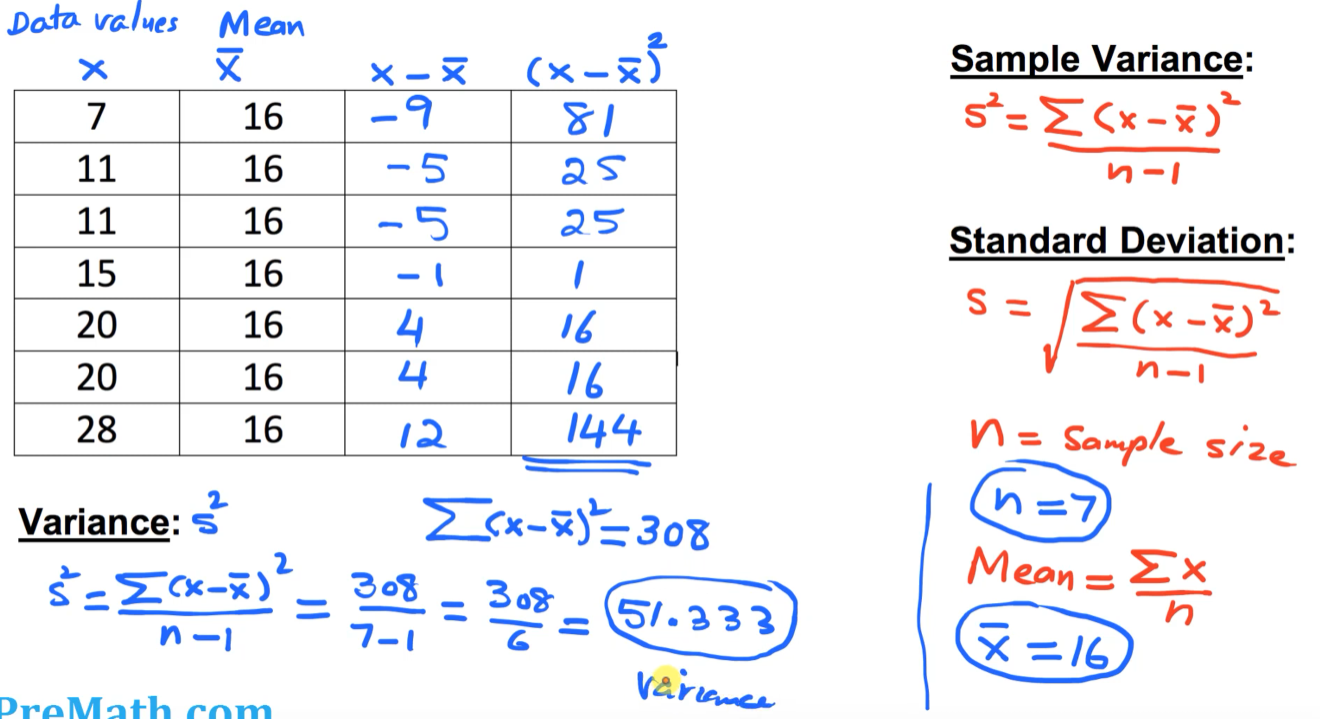 Data values Mean
x x̄ x – x̄ (x – x̄)²
7 16 –9 81
11 16 –5 25
11 16 –5 25
15 16 –1 1
20 16 4 16
20 16 4 16
28 16 12 144
Variance: s²
∑(x–x̄)² = 308
s² = ∑(x–x̄)² / n–1 = 308 / 7–1 = 308 / 6 = 51.333
variance
PreMath.com
Sample Variance:
s² = ∑(x–x̄)² / n–1
Standard Deviation:
s = √(∑(x–x̄)² / n–1)
n = Sample size
n = 7
Mean = ∑x / n
x̄ = 16